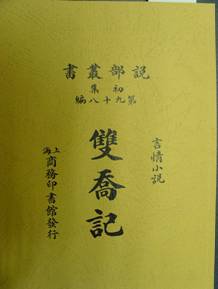 説部叢書
初集
第九十八編
言情小説
雙喬記
上海商務印書館發行